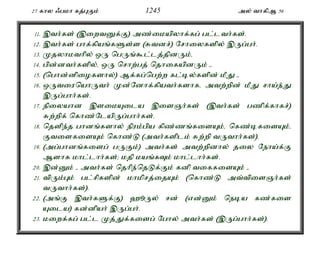 27 கால ஃபமா கத்புகும் 1245 அல் வாகிஆ 56
11. இவர்கள் (இறைவனுக்கு) அண்மையிலாக்கப் பட்டவர்கள்.
12. இவர்கள் பாக்கியங்களுள்ள (சுவனச்) சோலைகளில் இருப்பர்.
13. முதலாமவரில் ஒரு பெருங்கூட்டத்தினரும்,
14. பின்னவர்களில், ஒரு சொற்பத் தொகையினரும் -
15. (பொன்னிழைகளால்) ஆக்கப்பெற்ற கட்டில்களின் மீது -
16. ஒருவரையொருவர் முன்னோக்கியவர்களாக, அவற்றின் மீது சாய்ந்து
இருப்பார்கள்.
17. நிலையான இளமையுடைய இளைஞர்கள் (இவர்கள் பணிக்காகச்)
சுற்றிக் கொண்டேயிருப்பார்கள்.
18. தெளிந்த பானங்களால் நிரம்பிய கிண்ணங்களையும், கெண்டிகளையும்,
குவளைகளையும் கொண்டு (அவர்களிடம் சுற்றி வருவார்கள்).
19. (அப்பானங்களைப் பருகும்) அவர்கள் அவற்றினால் தலை நோய்க்கு
ஆளாக மாட்டார்கள்; மதி மயங்கவும் மாட்டார்கள்.
20. இன்னும் - அவர்கள் தெரிந்தெடுக்கும் கனி வகைகளையும் -
21. விரும்பும் பட்சிகளின் மாமிசத்தையும் (கொண்டு அவ்விளைஞர்கள்
வருவார்கள்).
22. (அங்கு இவர்களுக்கு) ஹூருல் ஈன் (என்னும் நெடிய கண்களை
யுடைய) கன்னியர் இருப்பர்.
23. மறைக்கப் பட்ட முத்துக்களைப் போல் அவர்கள் (இருப்பார்கள்).